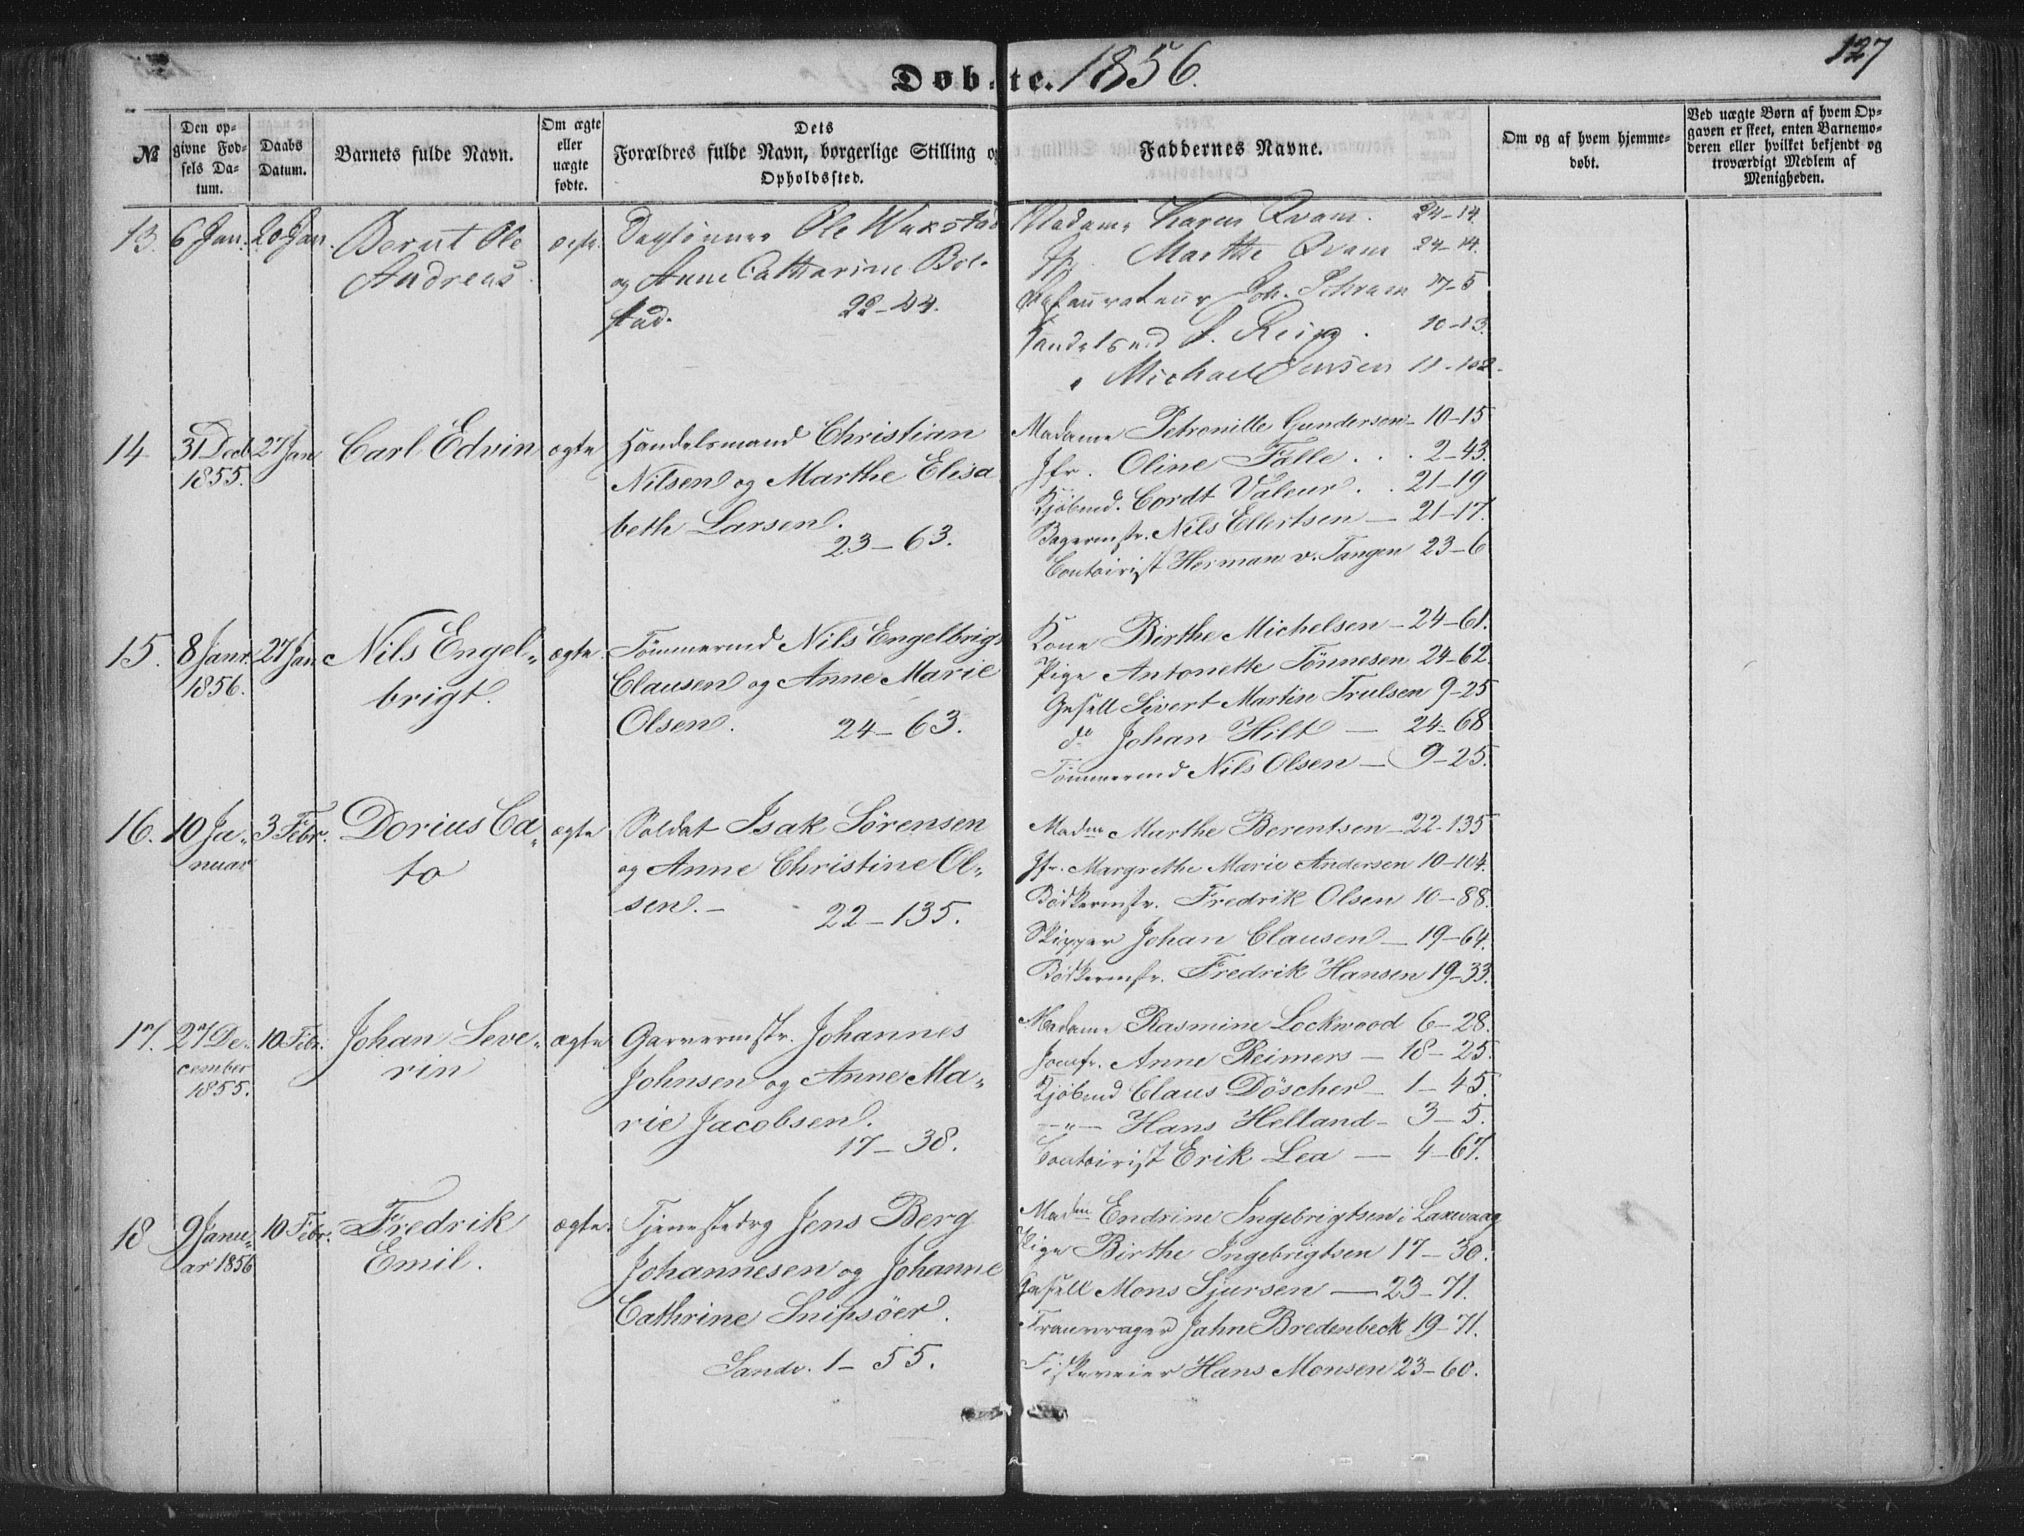 Døbte. 1856.
127
№
Den op-
givne Fød-
sels Da-
tum.
Daabs
Datum.
Barnets fulde Navn.
Om ægte
eller
uægte
fødte.
Dets
Forældres fulde Navn, borgerlige Stilling og
Opholdssted.
Faddernes Navne.
Om og af hvem hjemme-
døbt.
Ved uægte Børn af hvem Op-
gaven er skeet, enten Barnemo-
deren eller hvilket bekjendt og
troværdigt Medlem af
Menigheden.
13. 6 Jan. 20 Jan. Berut Ole
Andreas.
ægte.
Ole
og Anne Catharine Bol-
stad. 22-44.
Madame Karen Qvam. 24-14.
Jfr. Marthe Qvam 24-14.
Restaurateur Joh. Schram 17-5
Handelsmd 10-13.
" Michael Jensen 11-102.
14 31 Decb. 27 Jan Carl Edvin ægte
1855.
Handelsmand Christian
Nilsen og Marthe Elisa
beth Larsen.
23-63.
Madame Petronille Gundersen 10-15
Jfr. Oline Falle . . . 2-43.
Kjøbmd. Cordt Valeur . . 21-19
Bagermstr. Nils Ellertsen - 21-17.
Contoirist Herman v. Tangen 23-6
15. 8 Janr. 27 Jan Nils Engel-
1856. brigt.
ægte.
Tømmermd Nils Engelbrigt
Clausen og Anne Marie
Olsen. 24-63.
Kone Birthe Michelsen - 24-61.
Pige Antonette Tönnesen 24-62.
Gesell Sivert Martin Trulsen 9-25
do Johan Hilt - 24-68
Tømmermd Nils Olsen - 9-25.
16. 10 Ja- 3 Febr. Dorius Ca-
nuar to
ægte
Soldat Isak Sørensen
og Anne Christine Ol-
sen. - 22-135.
Madm Marthe Berentsen - 22-135
Jfr. Margrethe Marie Andersen 10-104.
Bødkermstr. Fredrik Olsen 10-88.
Skipper Johan Clausen - 19-64.
Bødkermstr. Fredrik Hansen 19-33.
17. 27 De- 10 Febr. Johan Seve-
cember rin
1855.
ægte
Garvermstr. Johannes
Johnsen og Anne Ma-
rie Jacobsen.
17-38.
Madame Rasmine Lockwood 6-28.
Jomfr. Anne Reimers - 18-25.
Kjøbmd Claus Döscher - 1-45.
-"- Hans Helland - 3-5.
Contoirist Erik Lea - 4-67.
18 9 Janu- 10 Febr. Fredrik
ar 1856 Emil.
ægte.
Tjenestedrg Jens Berg
Johannesen og Johanne
Cathrine Snipsöer.
Sandv. 1-55.
Madm Endrine Ingebrigtsen i Laxevaag
Pige Birthe Ingebrigtsen 17-30.
Gesell Mons Sjursen - 23-71.
Tranvrager Jahn Bredenbeck 19-71.
Fiskeveier Hans Monsen 23-60.